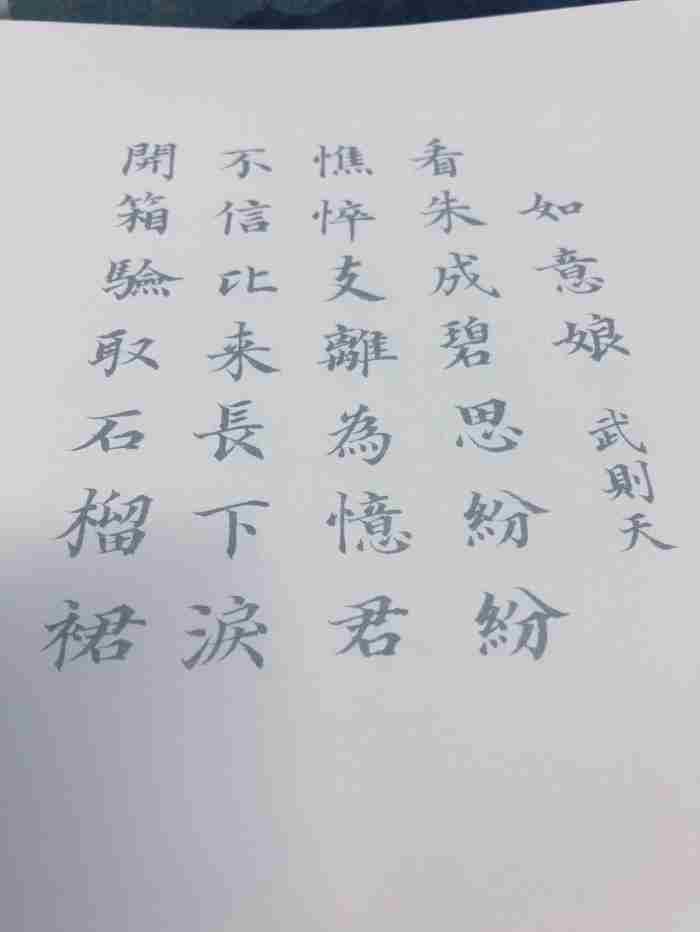 如意娘 武則天
看朱成碧思紛紛
憔悴支離為憶君
不信比来長下淚
開箱驗取石榴裙